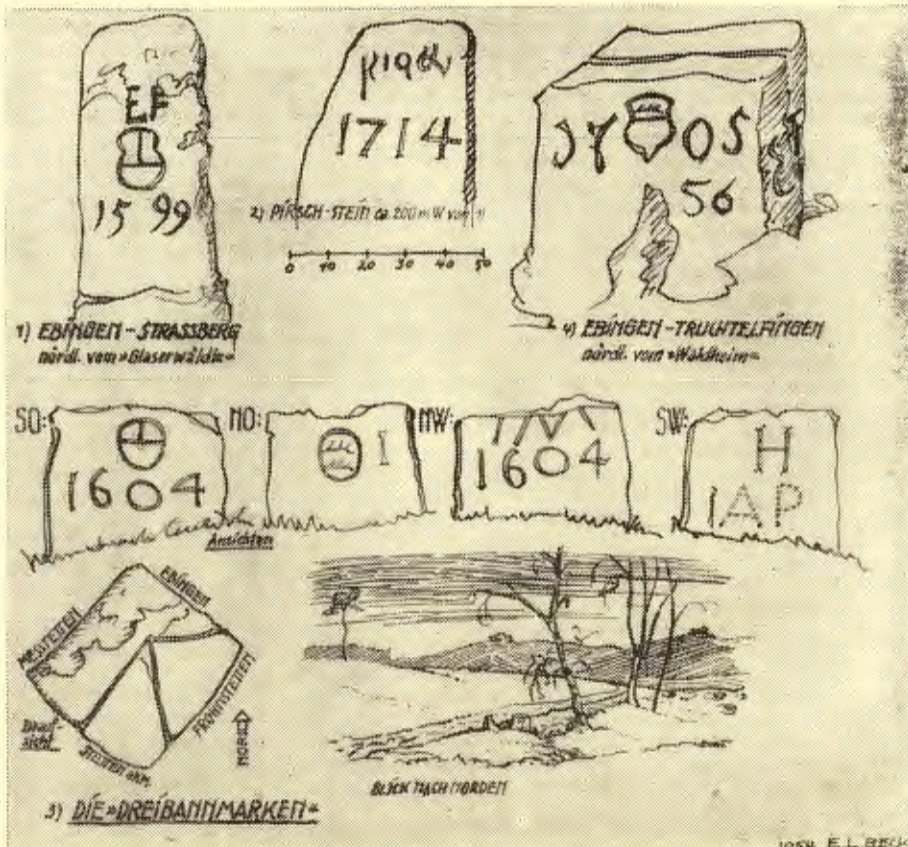 EF
15 99
1) EBINGEN-STRASSBERG
nördl. vom »Glaserwäldle«
1714
2) PIRSCH-STEIN ca. 200 m W von 1)
0 10 20 30 40 50
57 05
56
4) EBINGEN-TRUCHTELFINGEN
nördl. vom »Waldheim«
SO:
1604
NO:
1
NW:
1604
SW:
H
IAP
Ansichten
EBINGEN
MESSTETTEN
FROHNSTETTEN
STETTEN
Drauf-
sicht
NORD
BLICK NACH NORDEN
3) DIE »DREIBANNMARKEN«
1954 E. L. BECK